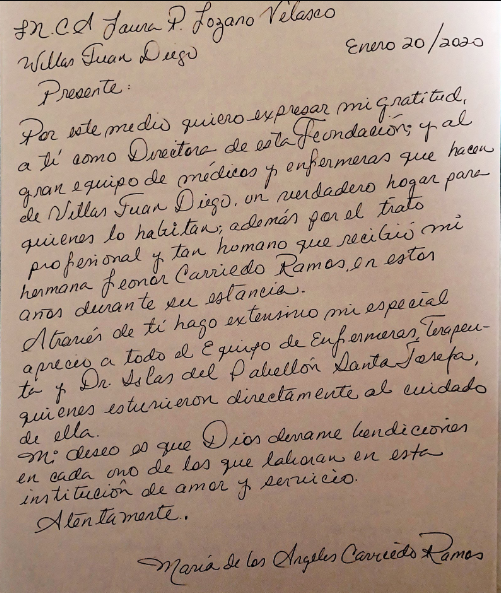 LN.C.A Laura P. Lozano Velasco
Villas Juan Diego
Enero 20/2020
Presente:
Por este medio quiero expresar mi gratitud,
a tí como Directora de esta Fundación; y al
gran equipo de médicos y enfermeras que hacen
de Villas Juan Diego, un verdadero hogar para
quienes lo habitan; además por el trato
profesional y tan humano que recibió mi
hermana Leonor Carriedo Ramos, en estos
años durante su estancia.
Através de tí hago extensivo mi especial
aprecio a todo el Equipo de Enfermeras, Terapeu-
ta y Dr. Islas del Pabellón Santa Josefa,
quienes estuvieron directamente al cuidado
de ella.
Mi deseo es que Dios derrame bendiciones
en cada uno de los que laboran en esta
institución de amor y servicio.
Atentamente.
María de los Angeles Carriedo Ramos